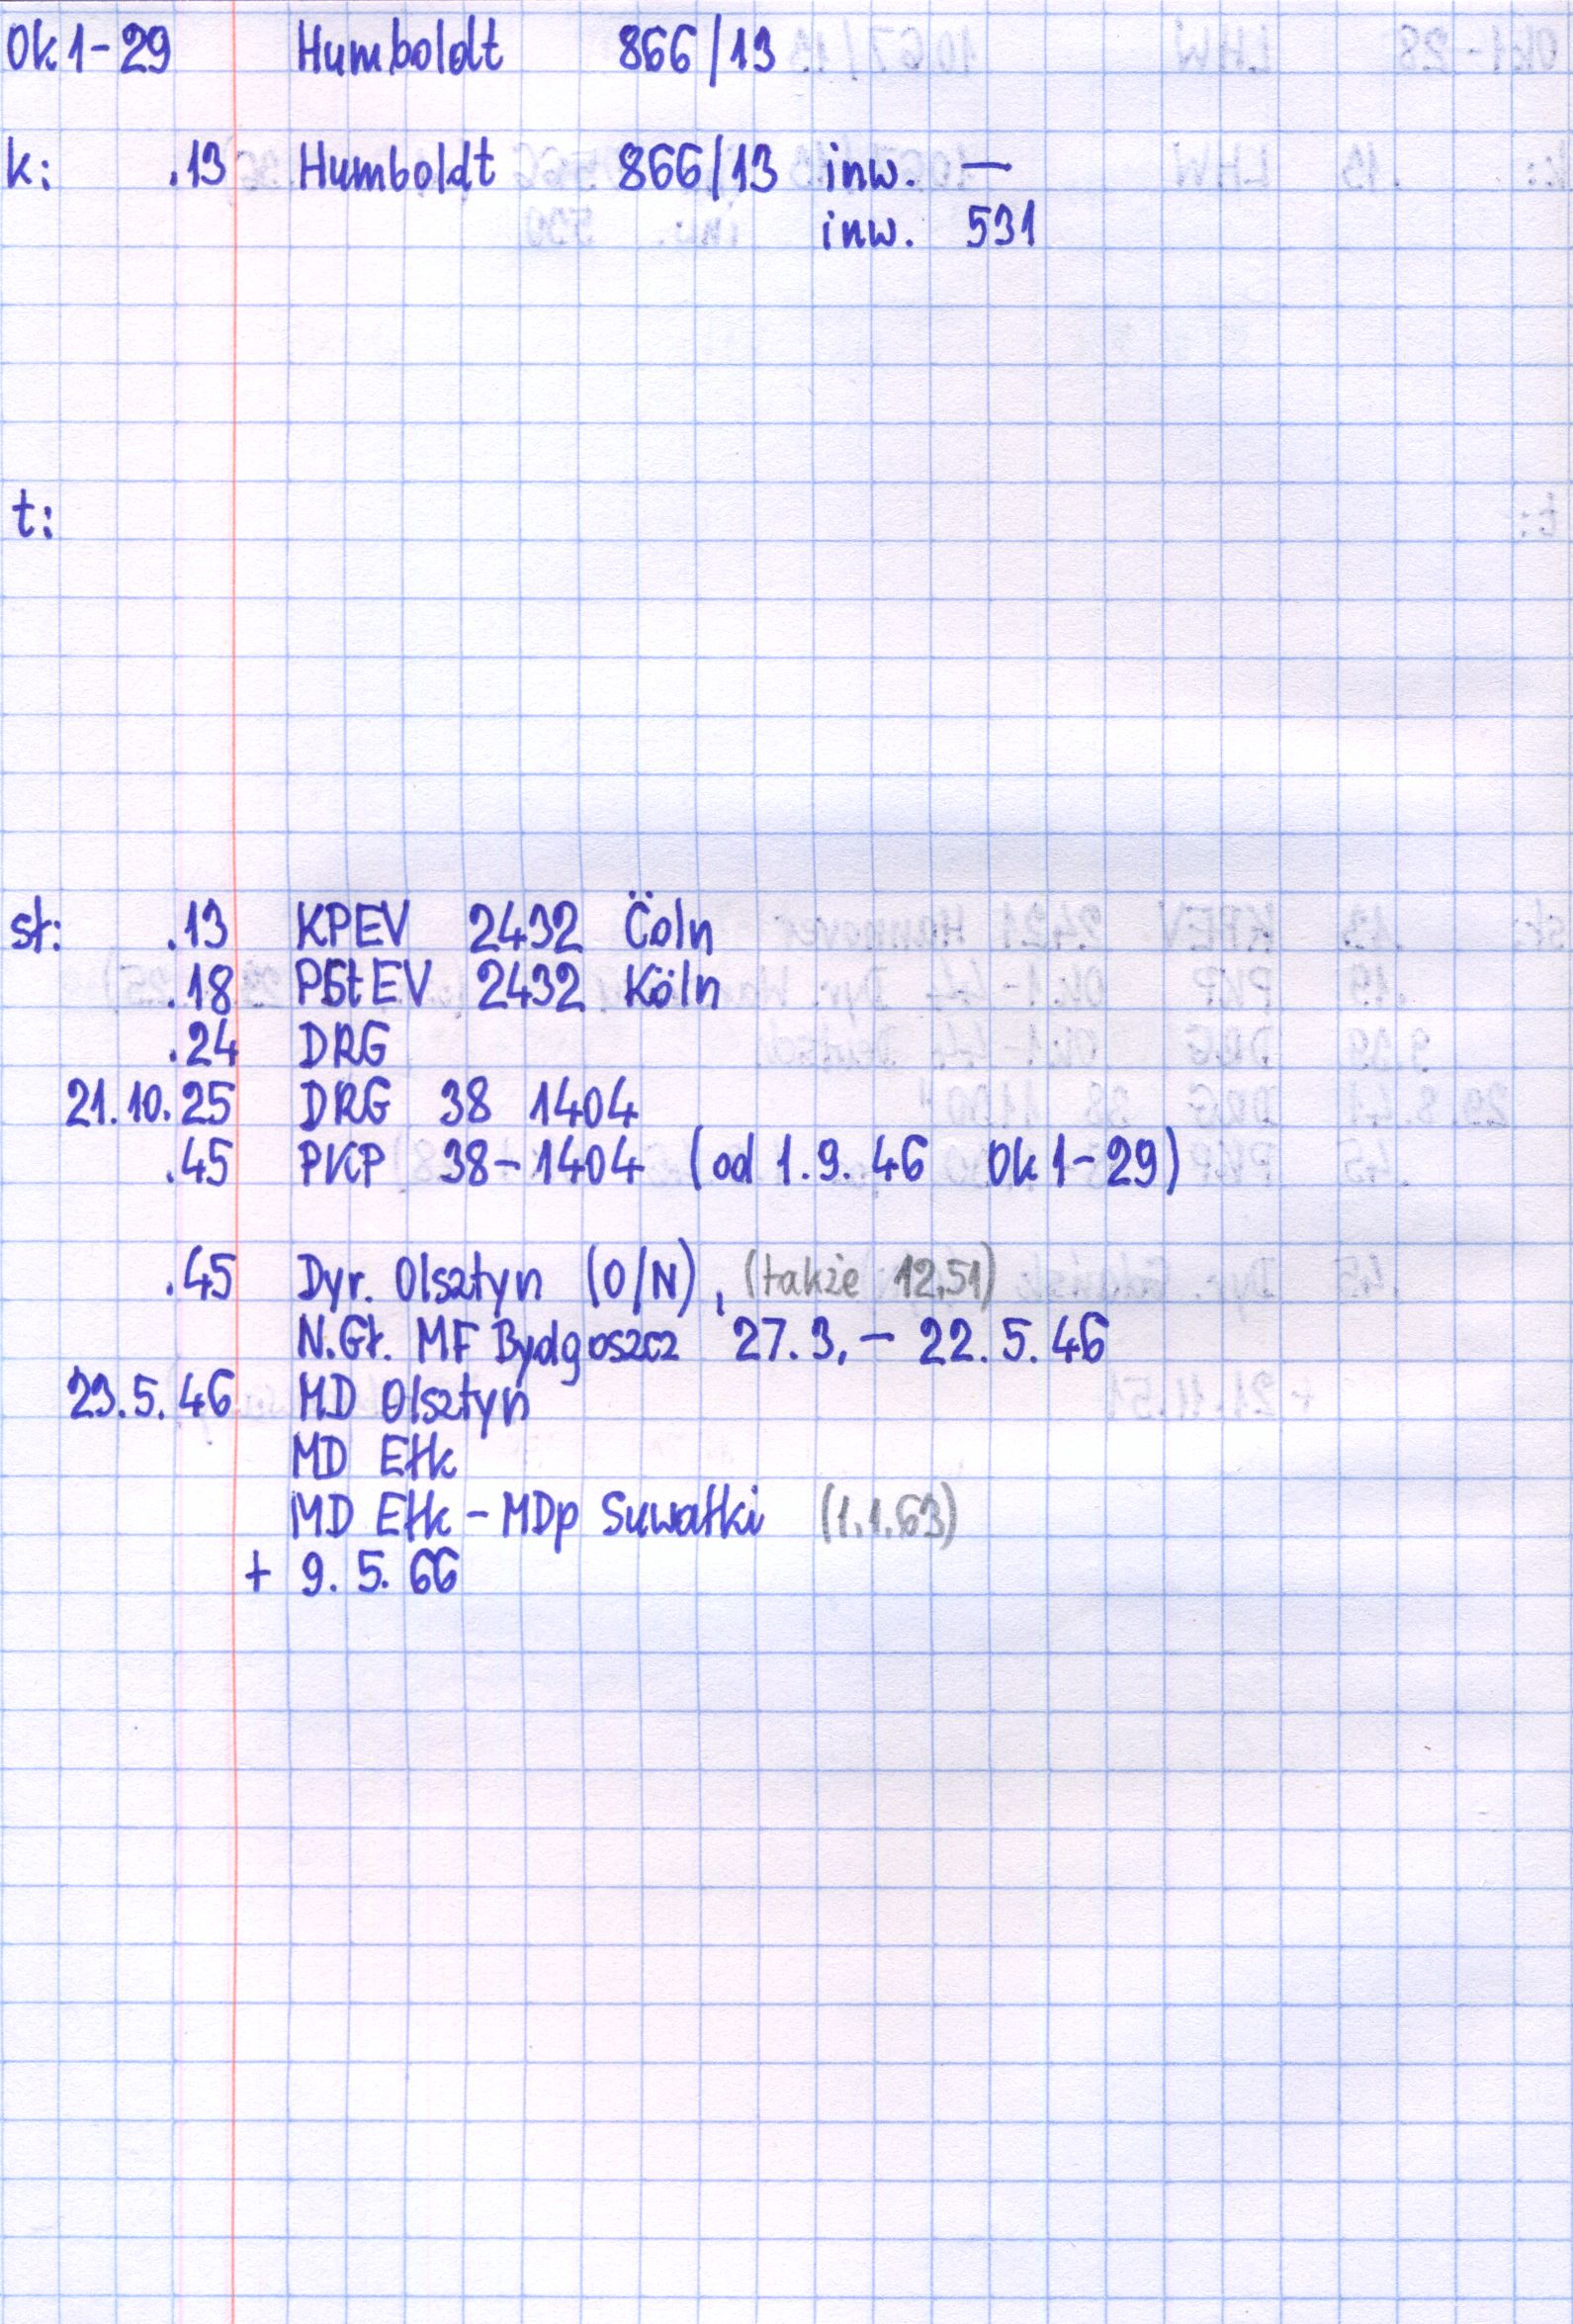 Ok1-29 Humboldt 866/13
k: .13 Humboldt 866/13 inw. —
inw. 531
t:
st: .13 KPEV 2432 Cöln
.18 PStEV 2432 Köln
.24 DRG
21.10.25 DRG 38 1404
.45 PKP 38-1404 (od 1.9.46 Ok1-29)
.45 Dyr. Olsztyn (O/N), (także 12.51)
N.Gł. MF Bydgoszcz 27.3.- 22.5.46
23.5.46 MD Olsztyn
MD Ełk
MD Ełk - MDp Suwałki (1.1.63)
+ 9.5.66